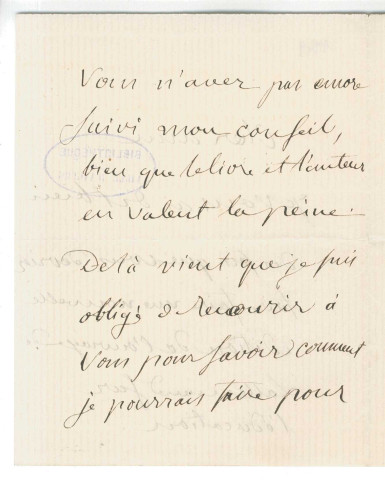 Vous n'avez pas encore
suivi mon conseil,
bien que le livre et l'auteur
en valent la peine.
De là vient que je suis
obligé de recourir à
vous pour savoir comment
je pourrais faire pour